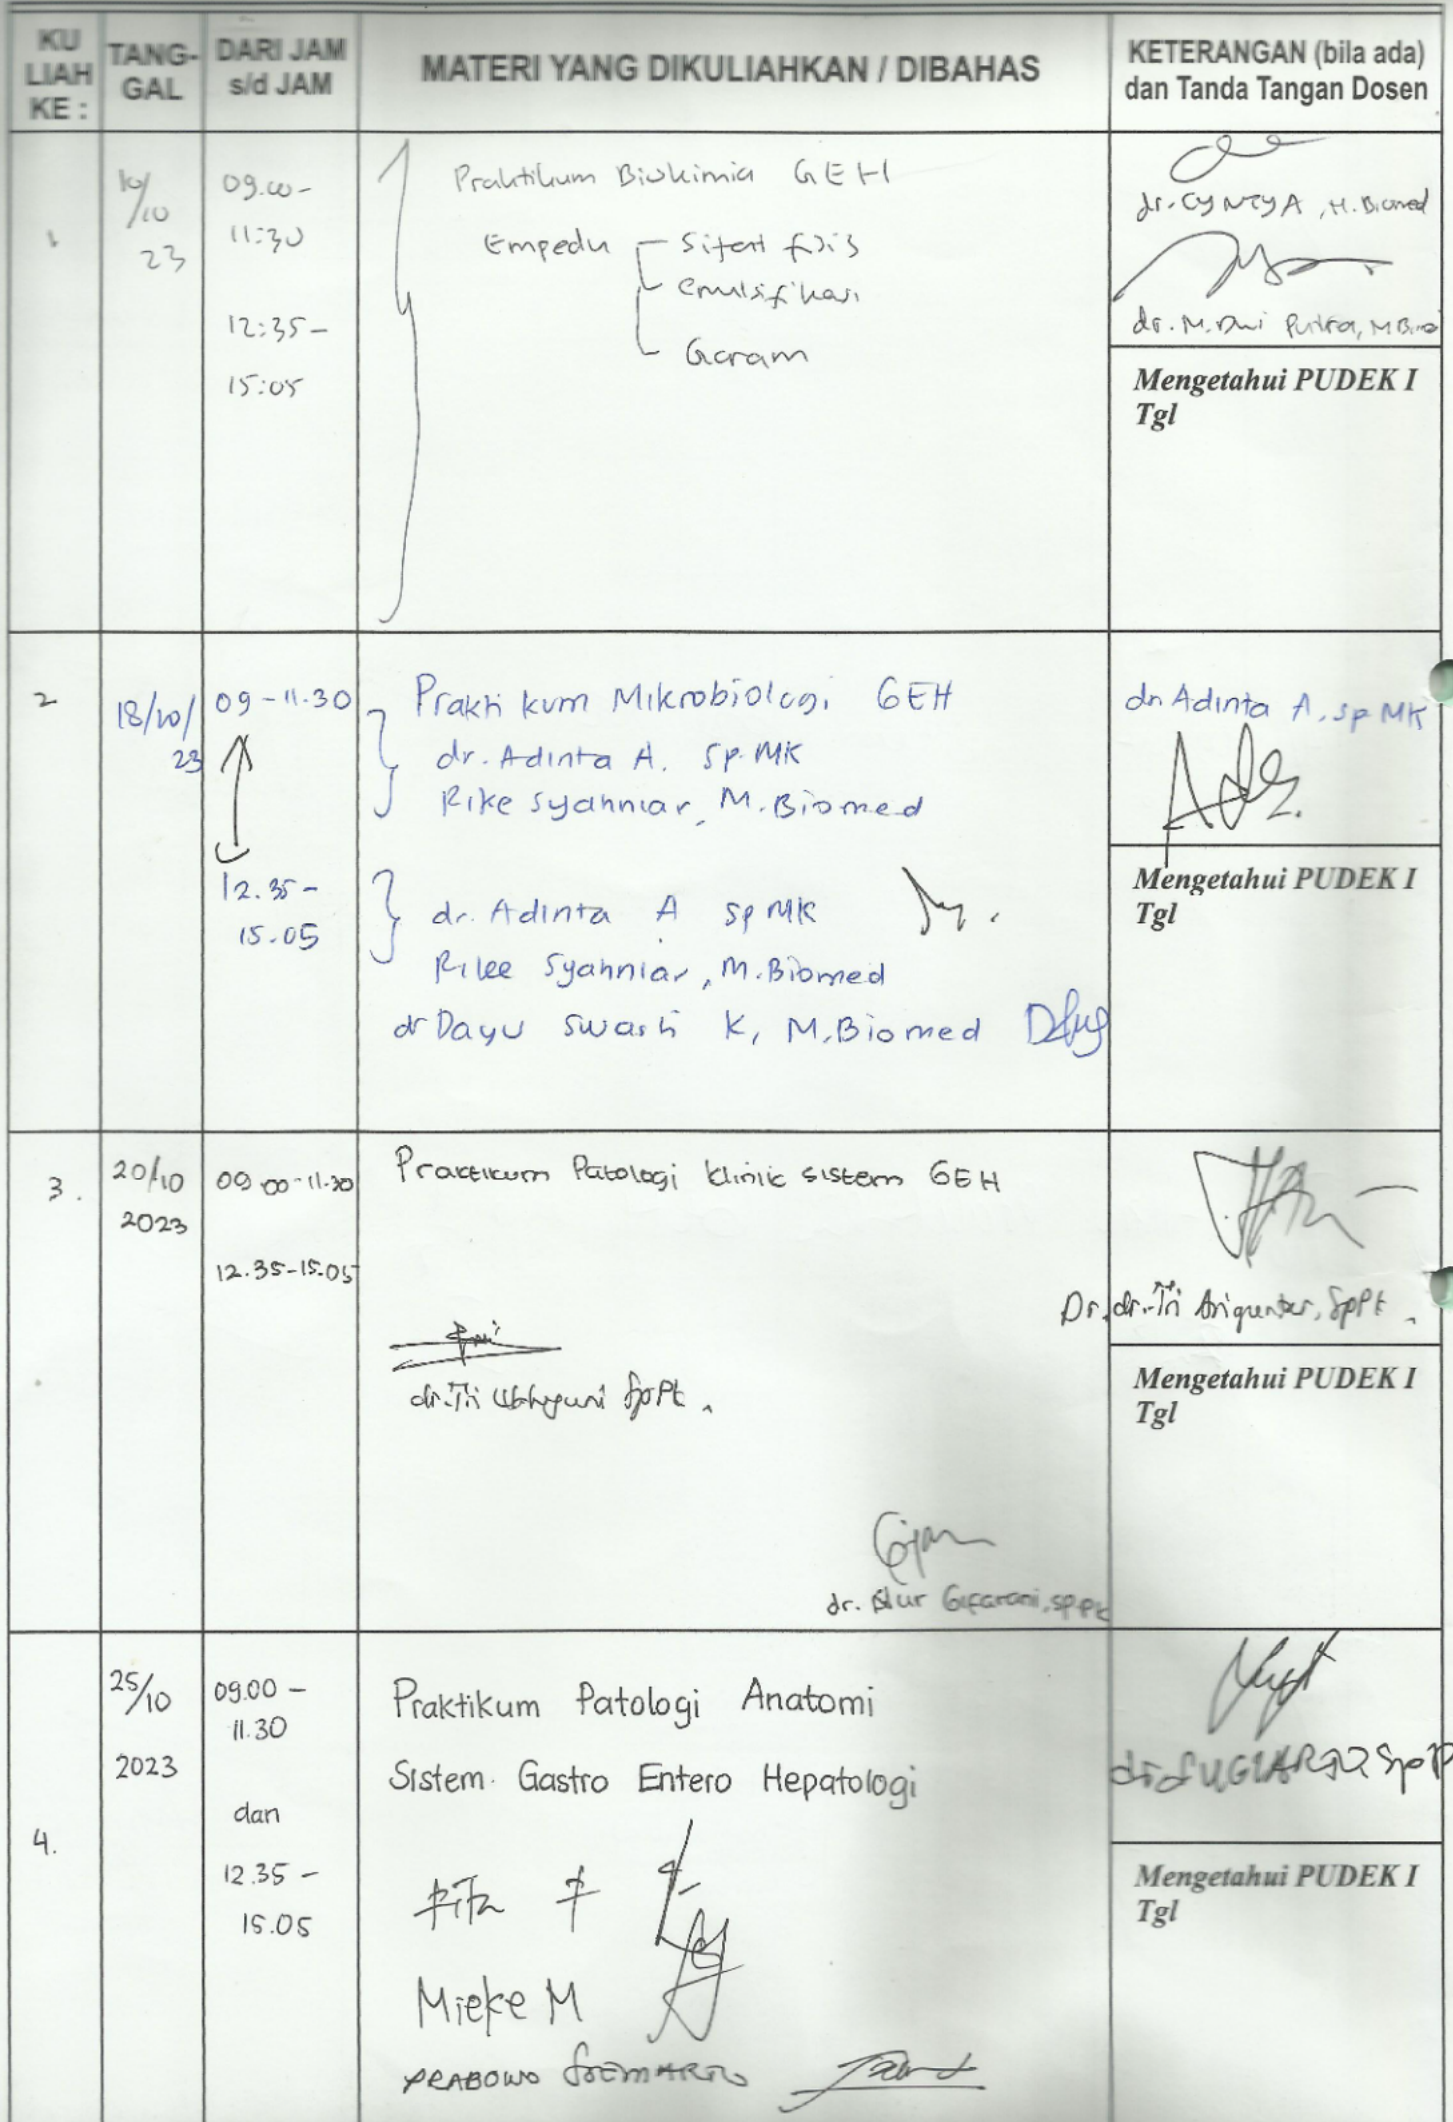 KU LIAH KE :
TANG-GAL
DARI JAM s/d JAM
MATERI YANG DIKULIAHKAN / DIBAHAS
KETERANGAN (bila ada) dan Tanda Tangan Dosen
1
10/10
23
09.00-
11:30
12:35-
15:05
Praktikum Biokimia GEH
Empedu
Sifat fisis
emulsifikasi
Garam
dr. CYNTYA, M.Biomed
dr. M. Dwi Putra, M Biomed
Mengetahui PUDEK I
Tgl
2
18/10/
23
09-11.30
12.35-
15.05
Praktikum Mikrobiologi GEH
dr. Adinta A. Sp.MK
Rike Syahniar, M.Biomed
dr. Adinta A SpMK
Rike Syahniar, M.Biomed
dr Dayu Swasti K, M.Biomed
dr Adinta A, Sp MK
Mengetahui PUDEK I
Tgl
3.
20/10
2023
09.00-11.30
12.35-15.05
Praktikum Patologi klinik sistem GEH
dr. Tri SpPK
dr. Nur Gifarani, Sp.PK
Dr. dr. Tri SpPK
Mengetahui PUDEK I
Tgl
4.
25/10
2023
09.00 -
11.30
dan
12.35 -
15.05
Praktikum Patologi Anatomi
Sistem Gastro Entero Hepatologi
Mieke M
PRABOWO SOEMARTO
dr SUGIARTO SpPA
Mengetahui PUDEK I
Tgl